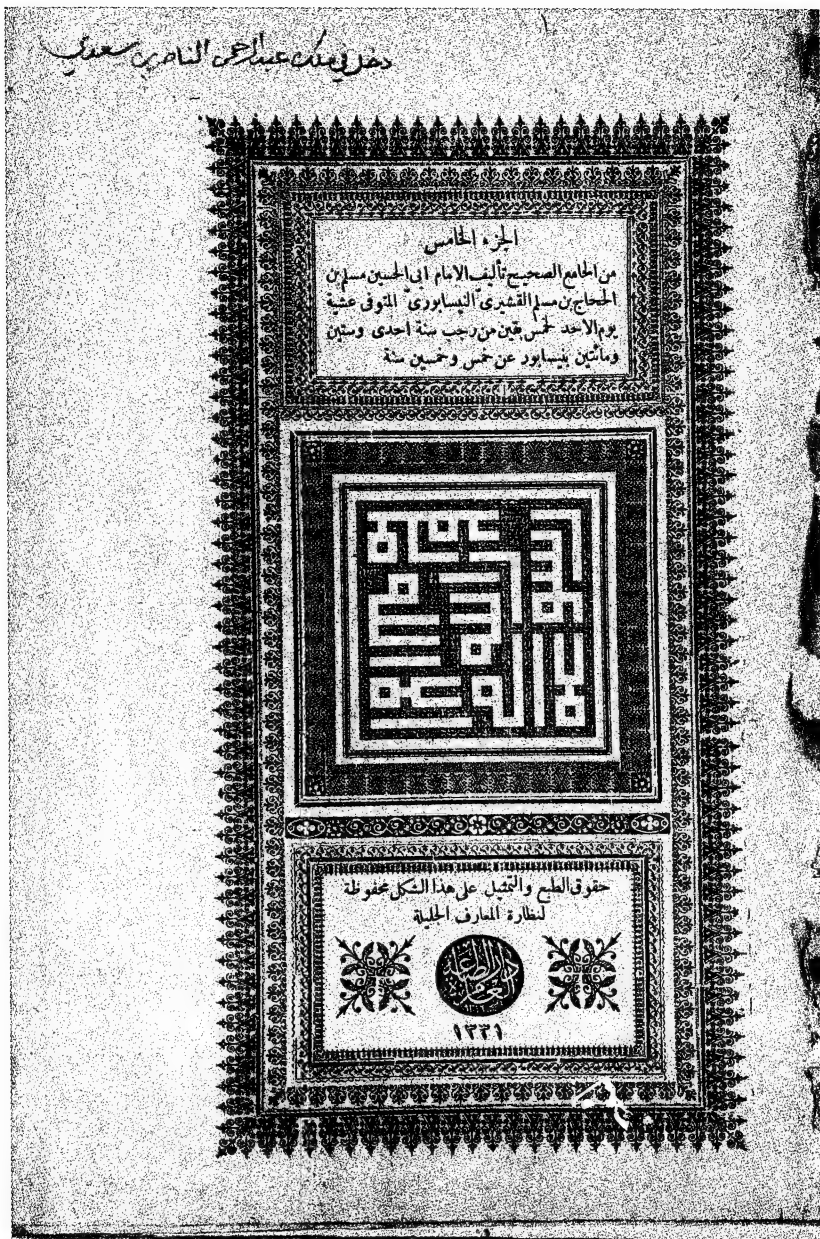 ١
دخل في ملك عبد الرحمن الناصر بن سعدي
الجزء الخامس
من الجامع الصحيح تأليف الامام ابى الحسين مسلم بن
الحجاج بن مسلم القشيرىّ النيسابورىّ المتوفى عشية
يوم الاحد لخمس بقين من رجب سنة احدى وستين
ومائتين بنيسابور عن خمس وخمسين سنة
حقوق الطبع والتمثيل على هذا الشكل محفوظة
لنظارة المعارف الجليلة
دار الطباعة العامرة
١٣٣١